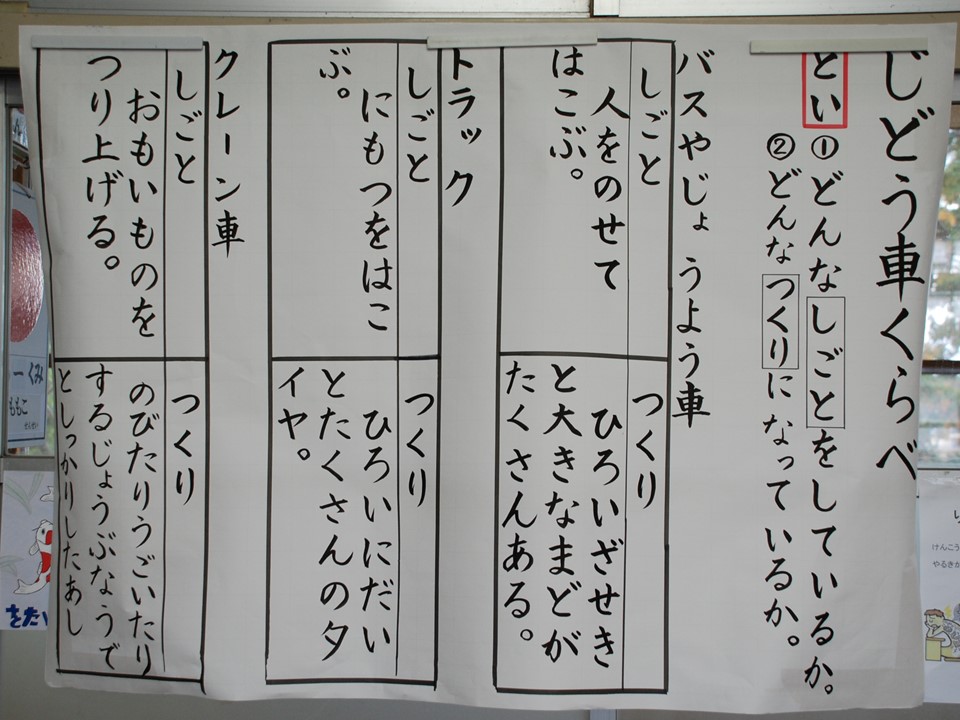 じどう車くらべ
とい ①どんなしごとをしているか。
②どんなつくりになっているか。
バスやじょうよう車
しごと
人をのせて
はこぶ。
つくり
ひろいざせき
と大きなまどが
たくさんある。
トラック
しごと
にもつをはこ
ぶ。
つくり
ひろいにだい
とたくさんのタ
イヤ。
クレーン車
しごと
おもいものを
つり上げる。
つくり
のびたりうごいたり
するじょうぶなうで
としっかりしたあし
ーくみ
ももこ
せんせい
けんこう
やるきか